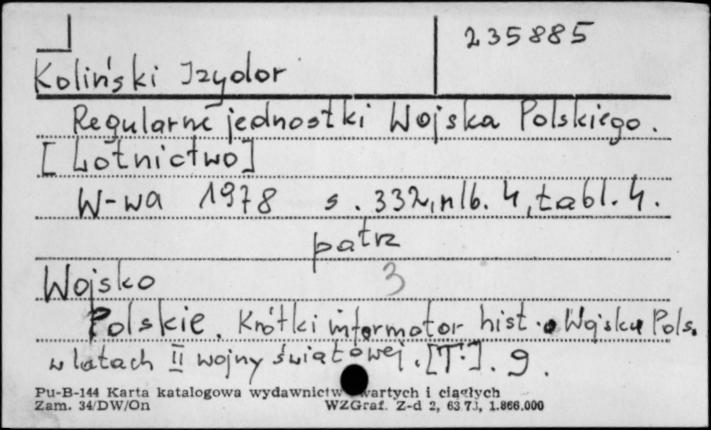 235885
Koliński Izydor
Regularne jednostki Wojska Polskiego.
[Lotnictwo]
W-wa 1978 s. 332, nlb. 4, tabl. 4.
patrz
Wojsko 3
Polskie. Krótki informator hist. o Wojsku Pols.
w latach II wojny światowej. [T.]. 9.
Pu-B-144 Karta katalogowa wydawnictw zwartych i ciągłych
Zam. 34/DW/On WZGraf. Z-d 2, 63 73, 1.866.000